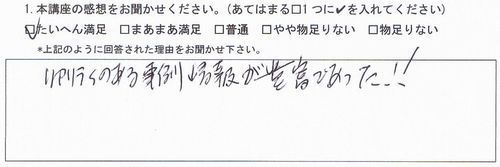 1.本講座の感想をお聞かせください。(あてはまる□1つに✓を入れてください)
☑たいへん満足 □まあまあ満足 □普通 □やや物足りない □物足りない
*上記のように回答された理由をお聞かせ下さい。
リアリティのある事例 情報が豊富であった!!